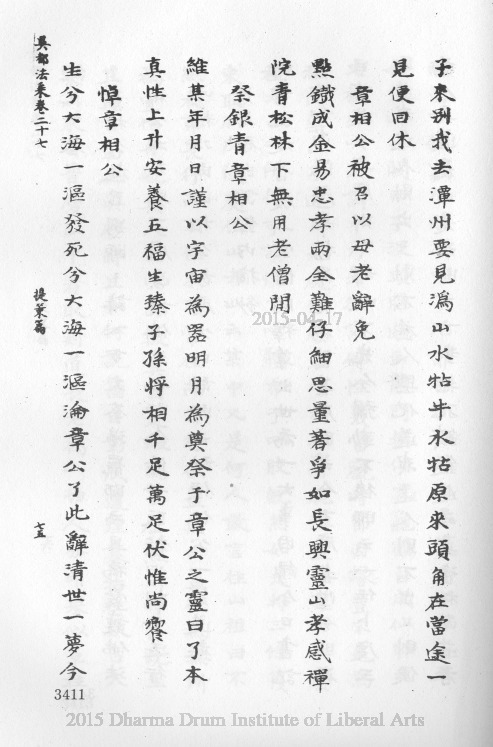 子來別我去潭州要見溈山水牯牛水牯原來頭角在當途一
見便回休
章相公被召以母老辭免
點鐵成金易忠孝兩全難仔細思量著爭如長興靈山孝感禪
院青松林下無用老僧閒
祭銀青章相公
維某年月日謹以宇宙為器明月為奠祭于章公之靈曰了本
真性上升安養五福生臻子孫將相千足萬足伏惟尚饗
悼章相公
生兮大海一漚發死兮大海一漚淪章公了此辭清世一夢今
吳都法乘卷二十七
提策篇
七五
3411
2015-04-17
2015 Dharma Drum Institute of Liberal Arts